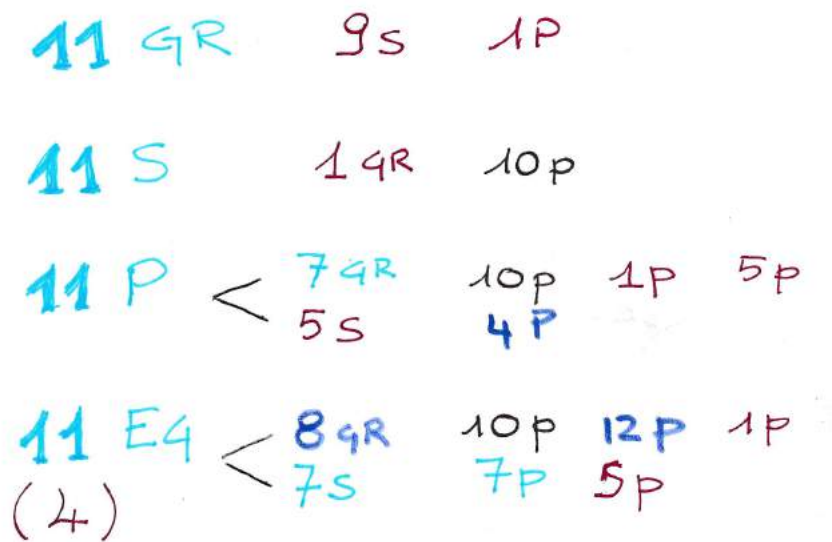 11 GR 9s 1P
11 S 1 GR 10p
11 P < 7 GR 10p 1p 5p
5 S 4 P
11 EG < 8 GR 10p 12p 1p
(4) 7s 7p 5p